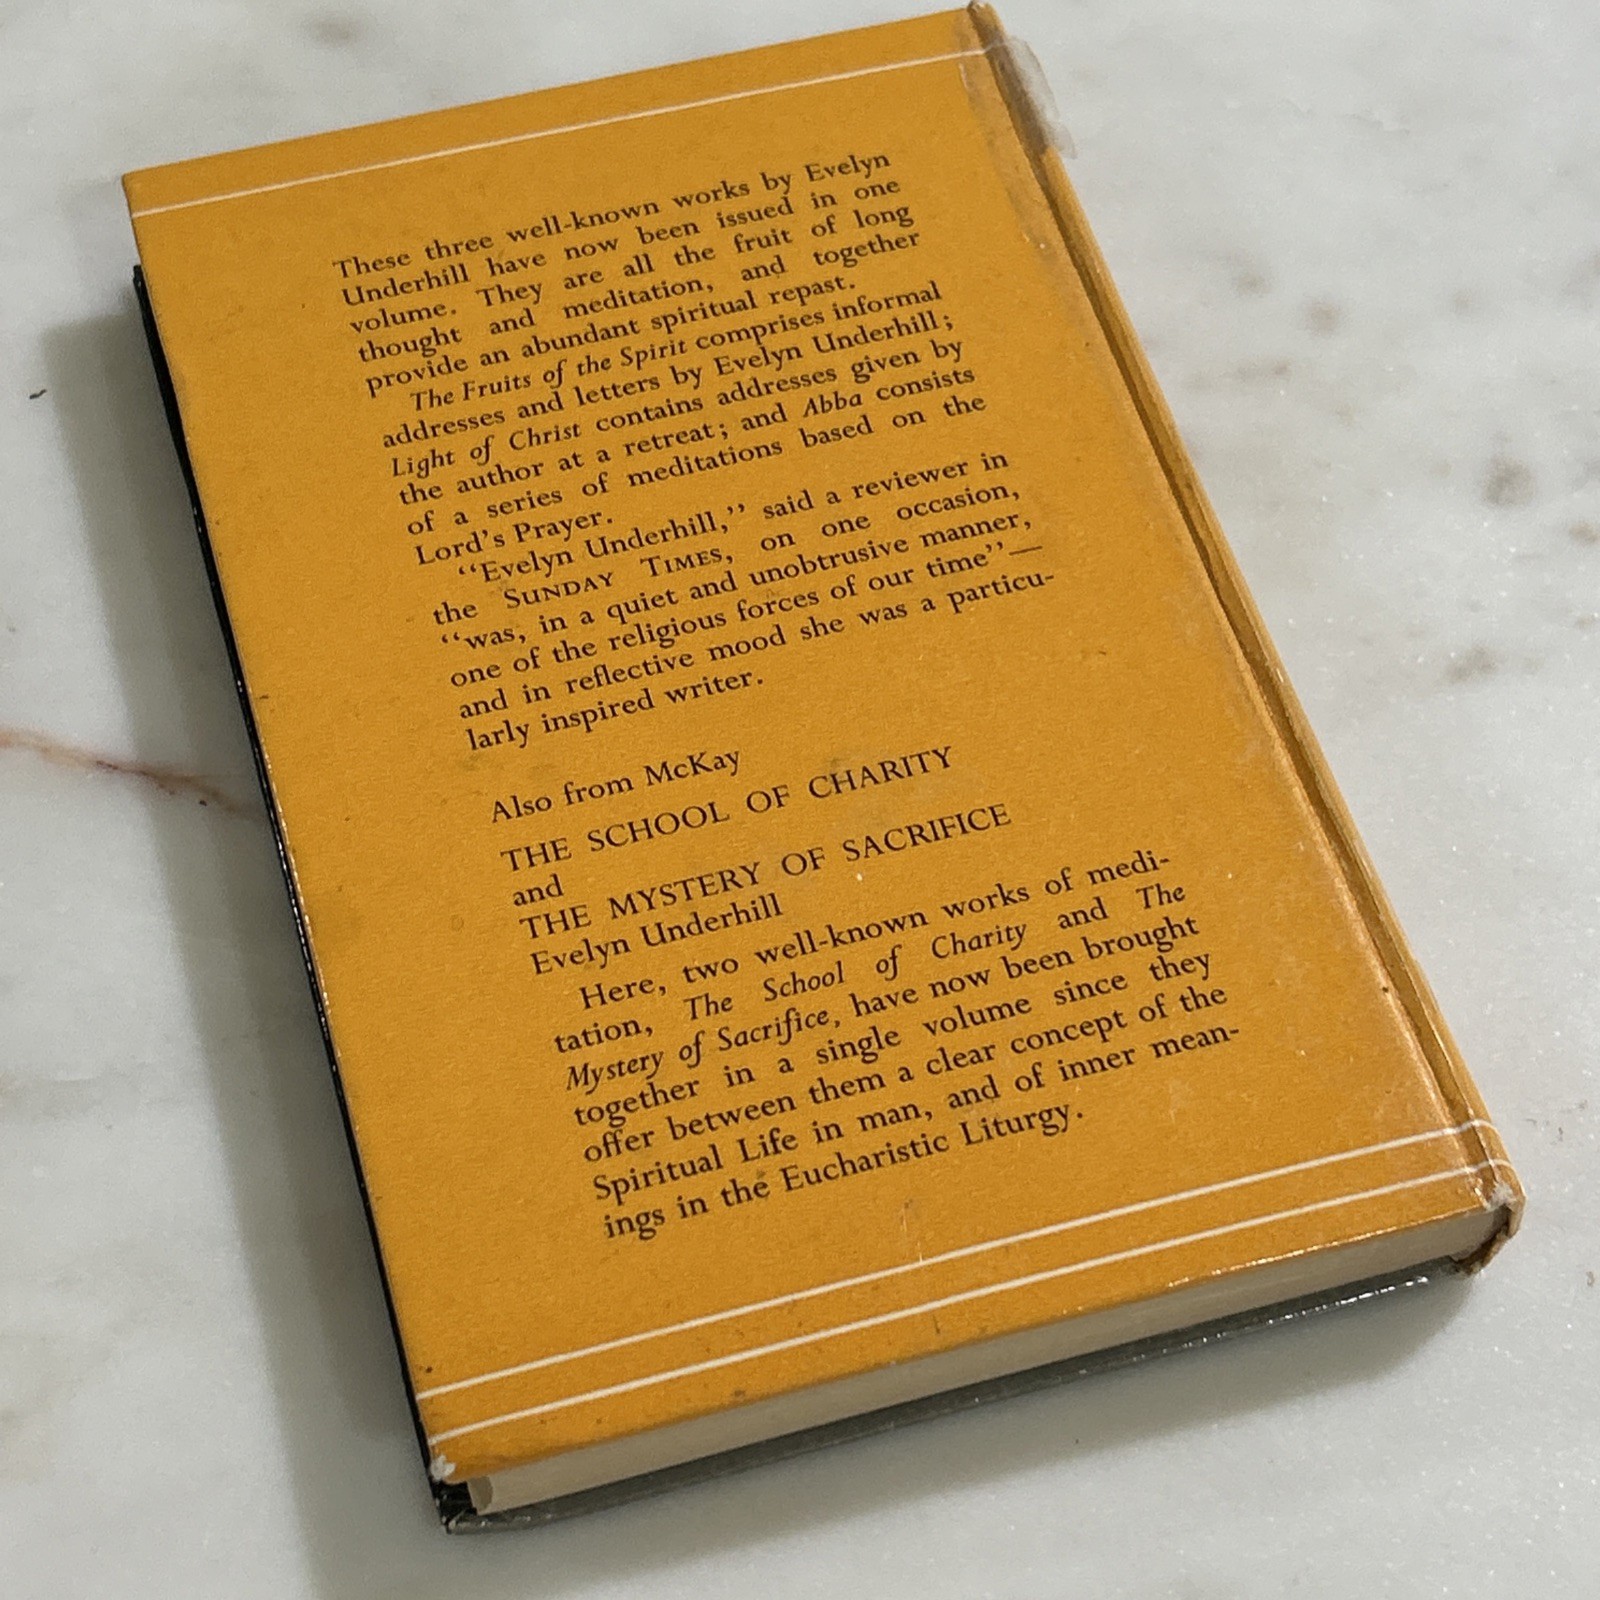 These three well-known works by Evelyn
Underhill have now been issued in one
volume. They are all the fruit of long
thought and meditation, and together
provide an abundant spiritual repast.
The Fruits of the Spirit comprises informal
addresses and letters by Evelyn Underhill;
Light of Christ contains addresses given by
the author at a retreat; and Abba consists
of a series of meditations based on the
Lord's Prayer.
“Evelyn Underhill,” said a reviewer in
the SUNDAY TIMES, on one occasion,
“was, in a quiet and unobtrusive manner,
one of the religious forces of our time”—
and in reflective mood she was a particu-
larly inspired writer.
Also from McKay
THE SCHOOL OF CHARITY
and
THE MYSTERY OF SACRIFICE
Evelyn Underhill
Here, two well-known works of medi-
tation, The School of Charity and The
Mystery of Sacrifice, have now been brought
together in a single volume since they
offer between them a clear concept of the
Spiritual Life in man, and of inner mean-
ings in the Eucharistic Liturgy.